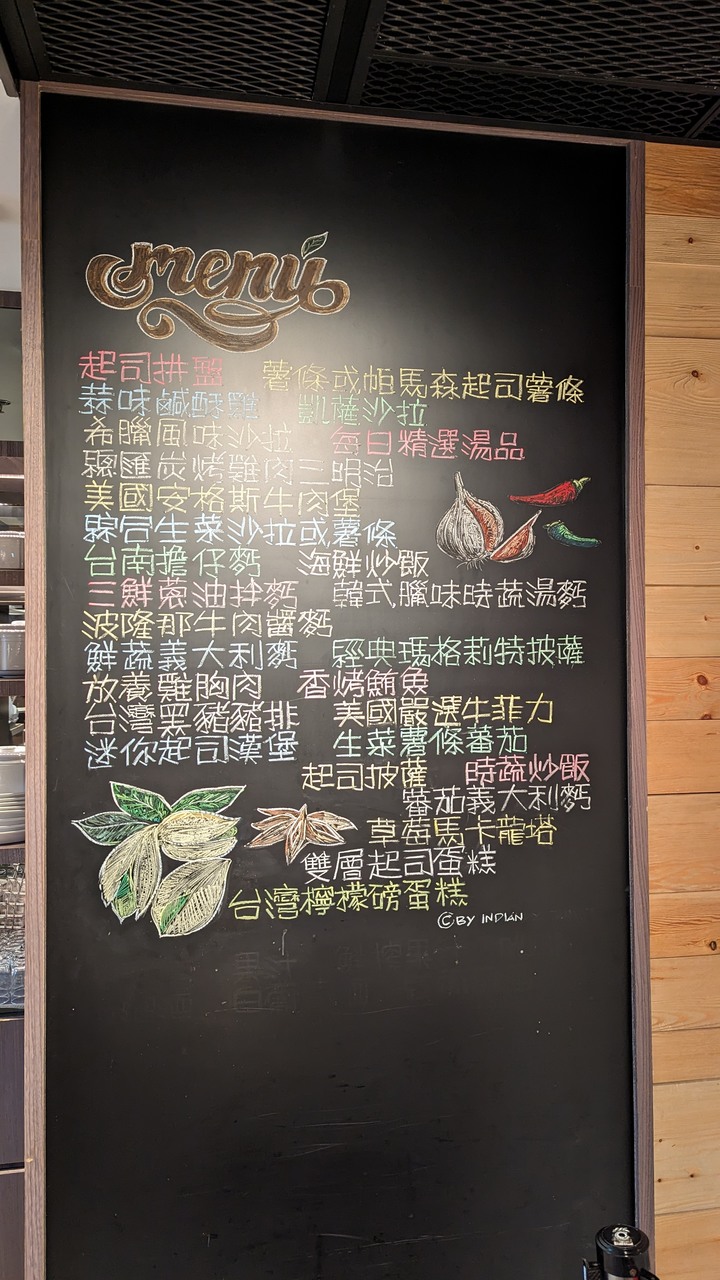 menu
起司拼盤 薯條或帕馬森起司薯條
蒜味鹹酥雞 凱薩沙拉
希臘風味沙拉 每日精選湯品
窯匯炭烤雞肉三明治
美國安格斯牛肉堡
綜合生菜沙拉或薯條
台南擔仔麵 海鮮炒飯
三鮮蔥油拌麵 韓式臘味時蔬湯麵
波隆那牛肉醬麵
鮮蔬義大利麵 經典瑪格莉特披薩
放養雞胸肉 香烤鮪魚
台灣黑豬豬排 美國嚴選牛菲力
迷你起司漢堡 生菜薯條蕃茄
起司披薩 時蔬炒飯
蕃茄義大利麵
草莓馬卡龍塔
雙層起司蛋糕
台灣檸檬磅蛋糕
©BY INDIAN